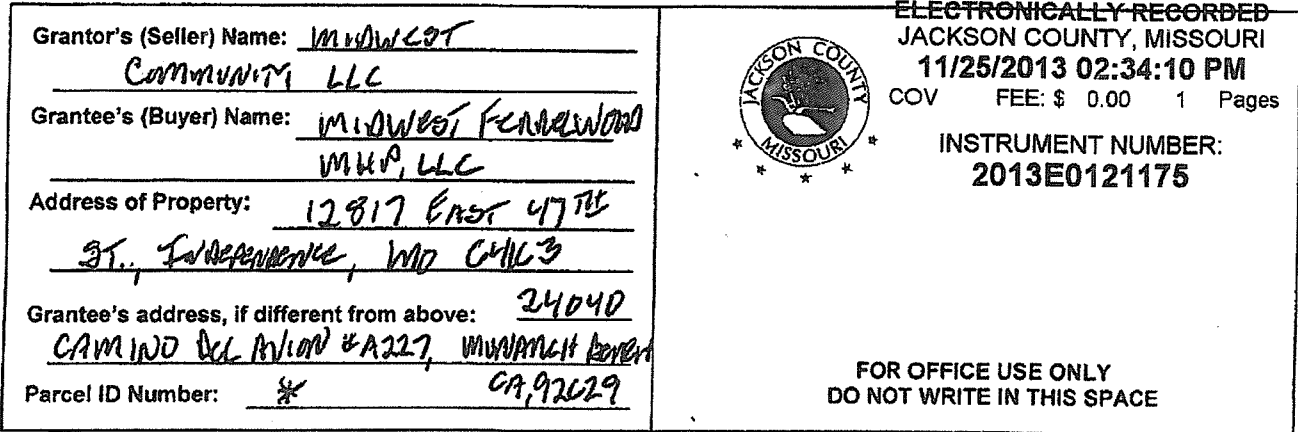 Grantor's (Seller) Name: MIDWEST
COMMUNITY LLC
Grantee's (Buyer) Name: MIDWEST FERRELWOOD
MHP, LLC
Address of Property: 12817 EAST 47TH
ST., INDEPENDENCE, MO 64163
Grantee's address, if different from above: 24040
CAMINO DEL AVION #A227, MONARCH BEACH
CA, 92629
Parcel ID Number: *
ELECTRONICALLY RECORDED
JACKSON COUNTY, MISSOURI
11/25/2013 02:34:10 PM
COV FEE: $ 0.00 1 Pages
INSTRUMENT NUMBER:
2013E0121175
JACKSON COUNTY
MISSOURI
FOR OFFICE USE ONLY
DO NOT WRITE IN THIS SPACE